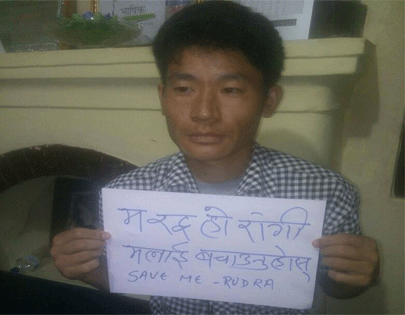 म रुद्र हो रोगी
मलाई बचाउनुहोस्
SAVE ME - RUDRA